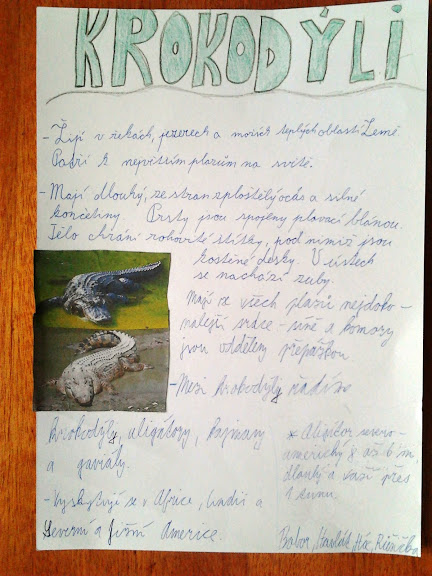 KROKODÝLI
- Žijí v řekách, jezerech a mořích teplých oblastí Země
Patří k největším plazům na světě.
- Mají dlouhý, ze stran zploštělý ocas a silné
končetiny Prsty jsou spojeny plovací blánou.
Tělo chrání rohovité štítky, pod nimiž jsou
kostěné desky. V ústech
se nachází zuby.
Mají ze všech plazů nejdoko-
nalejší srdce - síně a komory
jsou odděleny přepážkou.
- Mezi krokodýly řadíme
krokodýly, aligátory, kajmany
a gaviály.
- Vyskytují se v Africe, Indii a
Severní a Jižní Americe.
* Aligátor severo-
americký
až 6 m
dlouhý a váží přes
1 tunu.